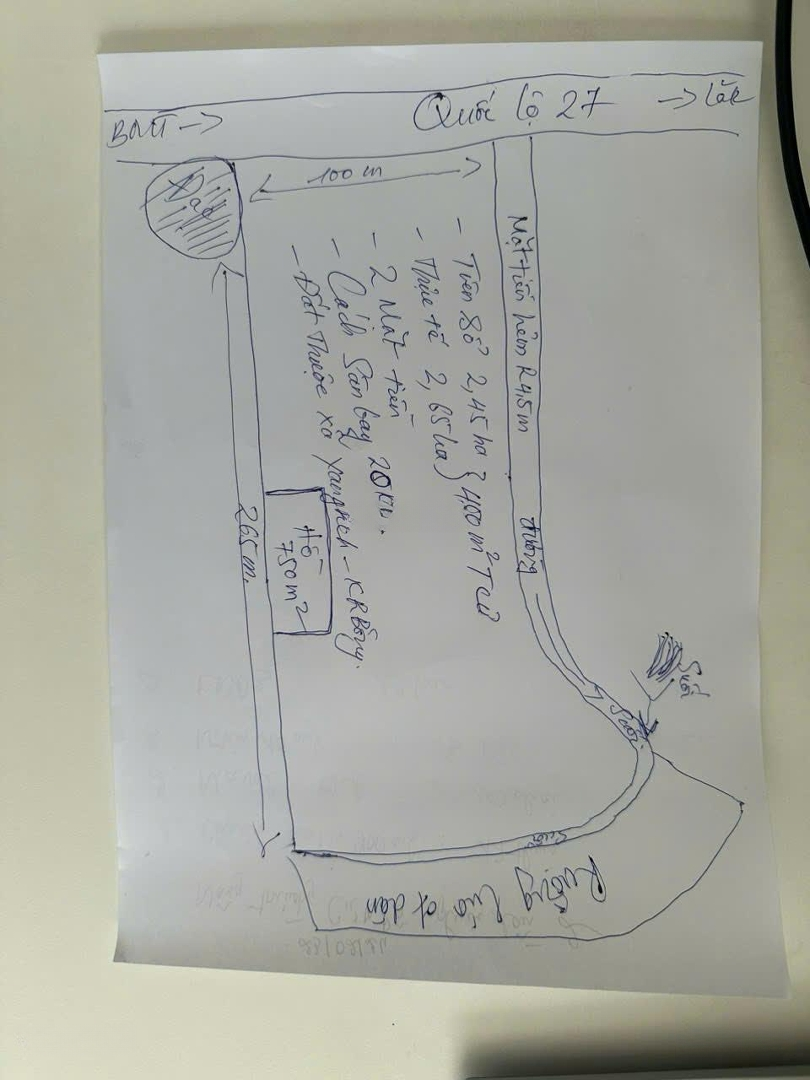 BMT →
Quốc lộ 27 → Lăk
100 m
Mặt tiền hẻm R 4,5m
đường
- Trên Sổ 2,45 ha } 400 m² TCLN
- Thực tế 2,65 ha
- 2 Mặt tiền
- Cách Sân bay 20 km.
- Đất thuộc xã Yangreh - KRBông.
265 m.
Hồ
750 m²
Suối
Suối
Suối
Ruộng lúa of dân